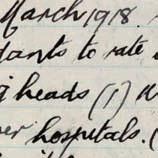 March 1918.
dants to rate
heads (1)
hospitals. (